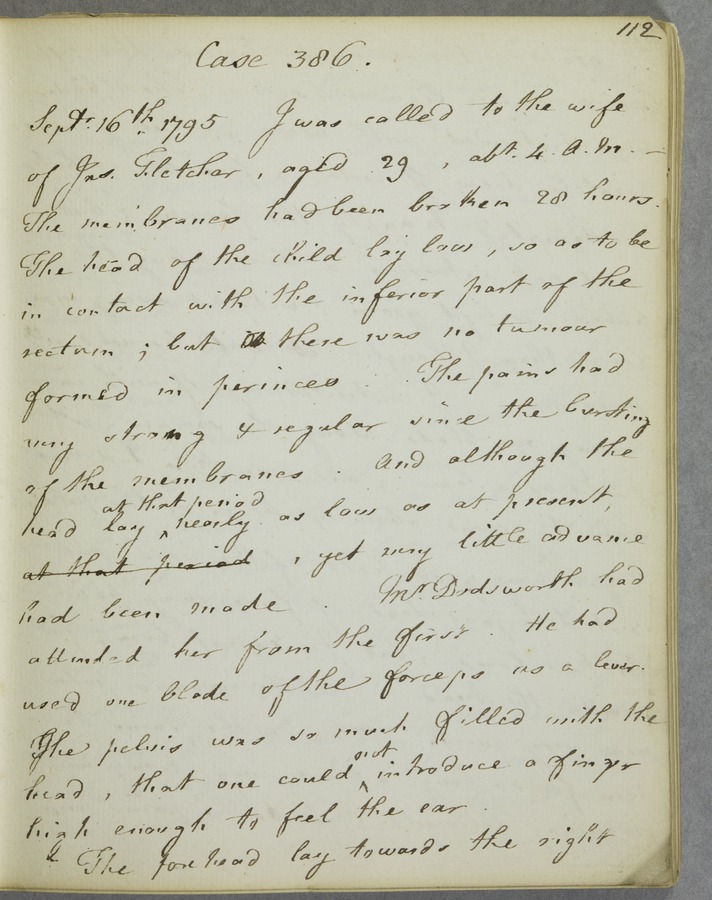 112
Case 386.
Septr. 16th 1795 I was called to the wife
of Jas. Fletcher, aged 29, abt. 4 A.M. –
The membranes had been broken 28 hours.
The head of the child lay low, so as to be
in contact with the inferior part of the
rectum; but there was no tumour
formed in perineo. The pains had
very strong & regular since the bursting
of the membranes. And although the
at that period
head lay ‸ nearly as low as at present,
at that period, yet very little advance
had been made. Mr. Dodsworth had
attended her from the first. He had
used one blade of the forceps as a lever.
The pelvis was so much filled with the
not
head, that one could ‸ introduce a finger
high enough to feel the ear.
& The forehead lay towards the right